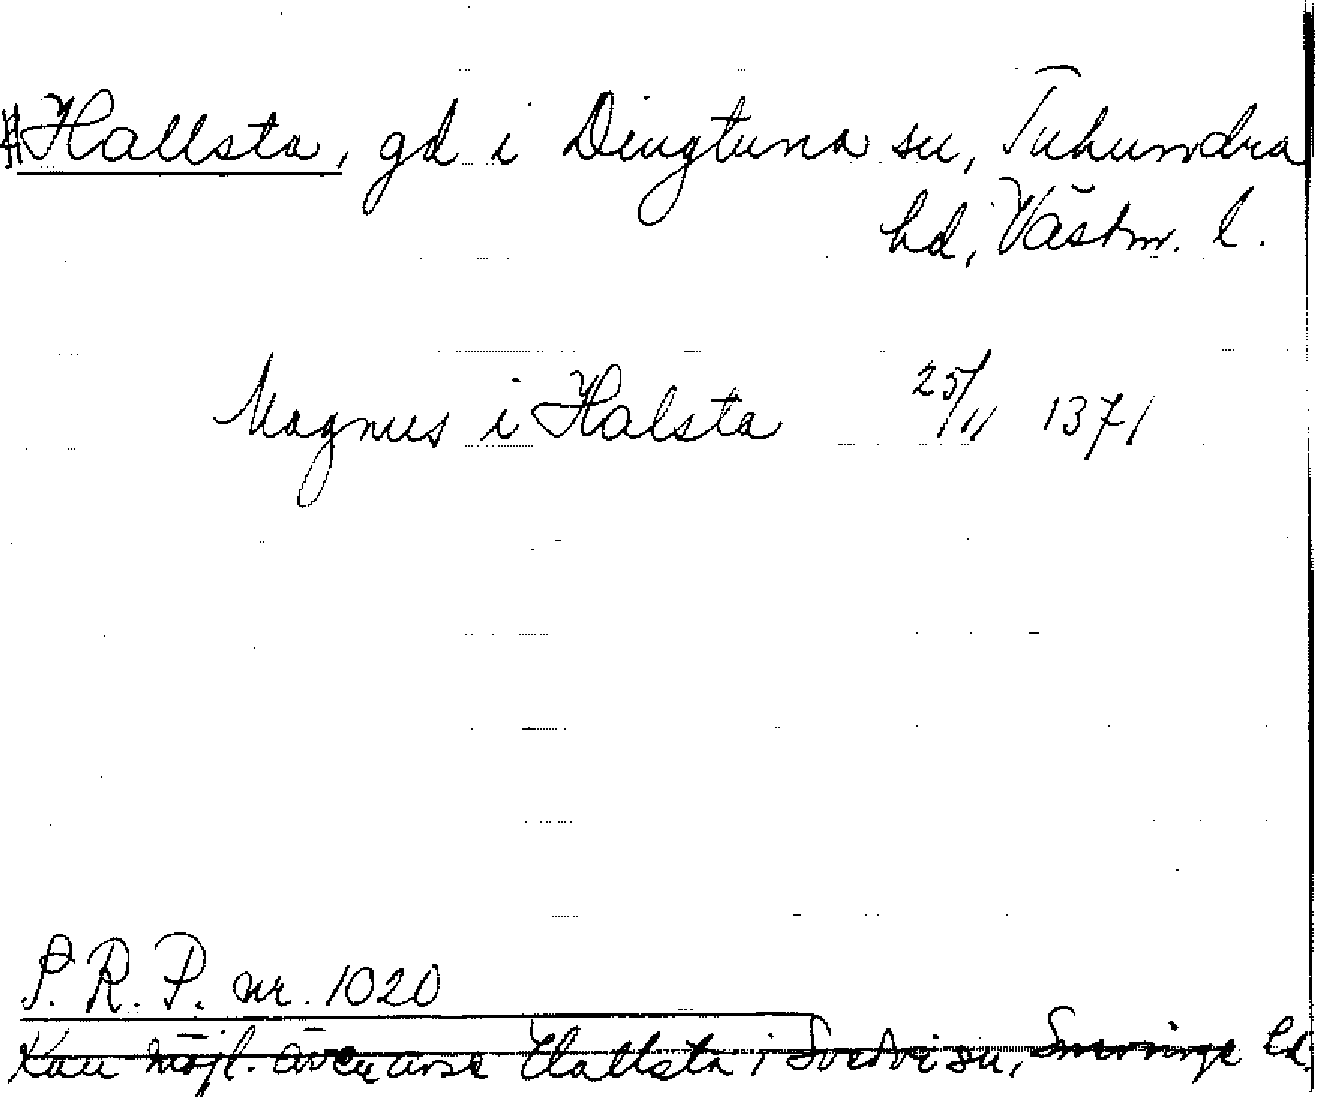 # Hallsta, gd i Dingtuna sn, Tuhundra
hd, Västm. l.
Magnus i Halsta 25/11 1371
S. R. P. nr. 1020
Kan möjl. även avse Hallsta i Svedvi sn, Snevringe hd.